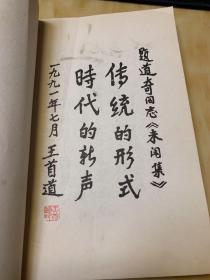 题道奇同志《未闲集》
传统的形式
時代的新声
一九九一年七月 王首道